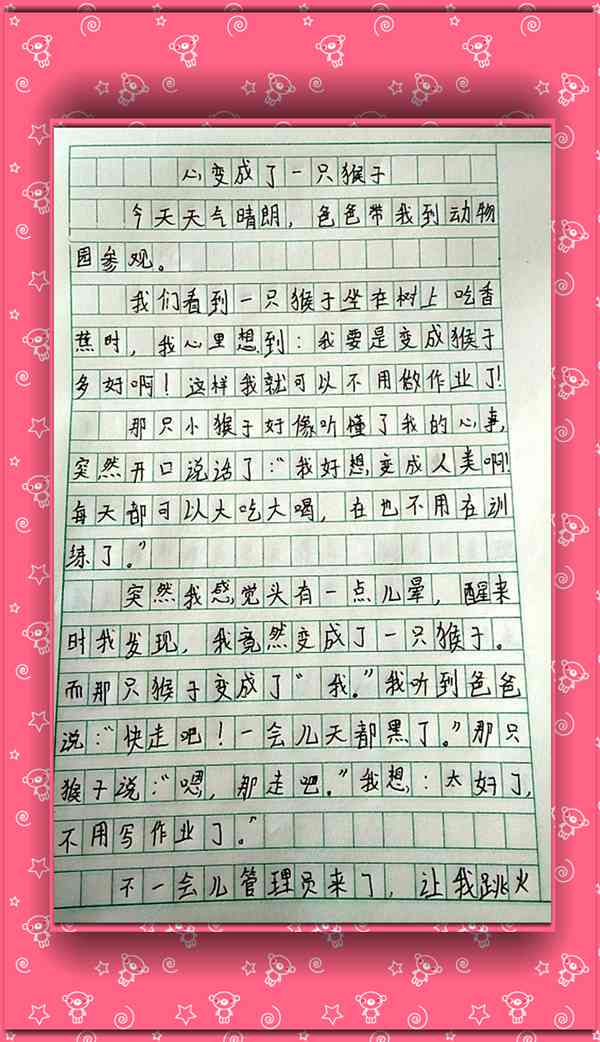 心变成了一只猴子
今天天气晴朗，爸爸带我到动物
园参观。
我们看到一只猴子坐在树上吃香
蕉时，我心里想到：我要是变成猴子
多好啊！这样我就可以不用做作业了！
那只小猴子好像听懂了我的心事，
突然开口说话了：“我好想变成人类啊！
每天都可以大吃大喝，在也不用在训
练了。”
突然我感觉头有一点儿晕，醒来
时我发现，我竟然变成了一只猴子。
而那只猴子变成了“我。”我听到爸爸
说：“快走吧！一会儿天都黑了。”那只
猴子说：“嗯，那走吧。”我想：太好了，
不用写作业了。”
不一会儿管理员来了，让我跳火